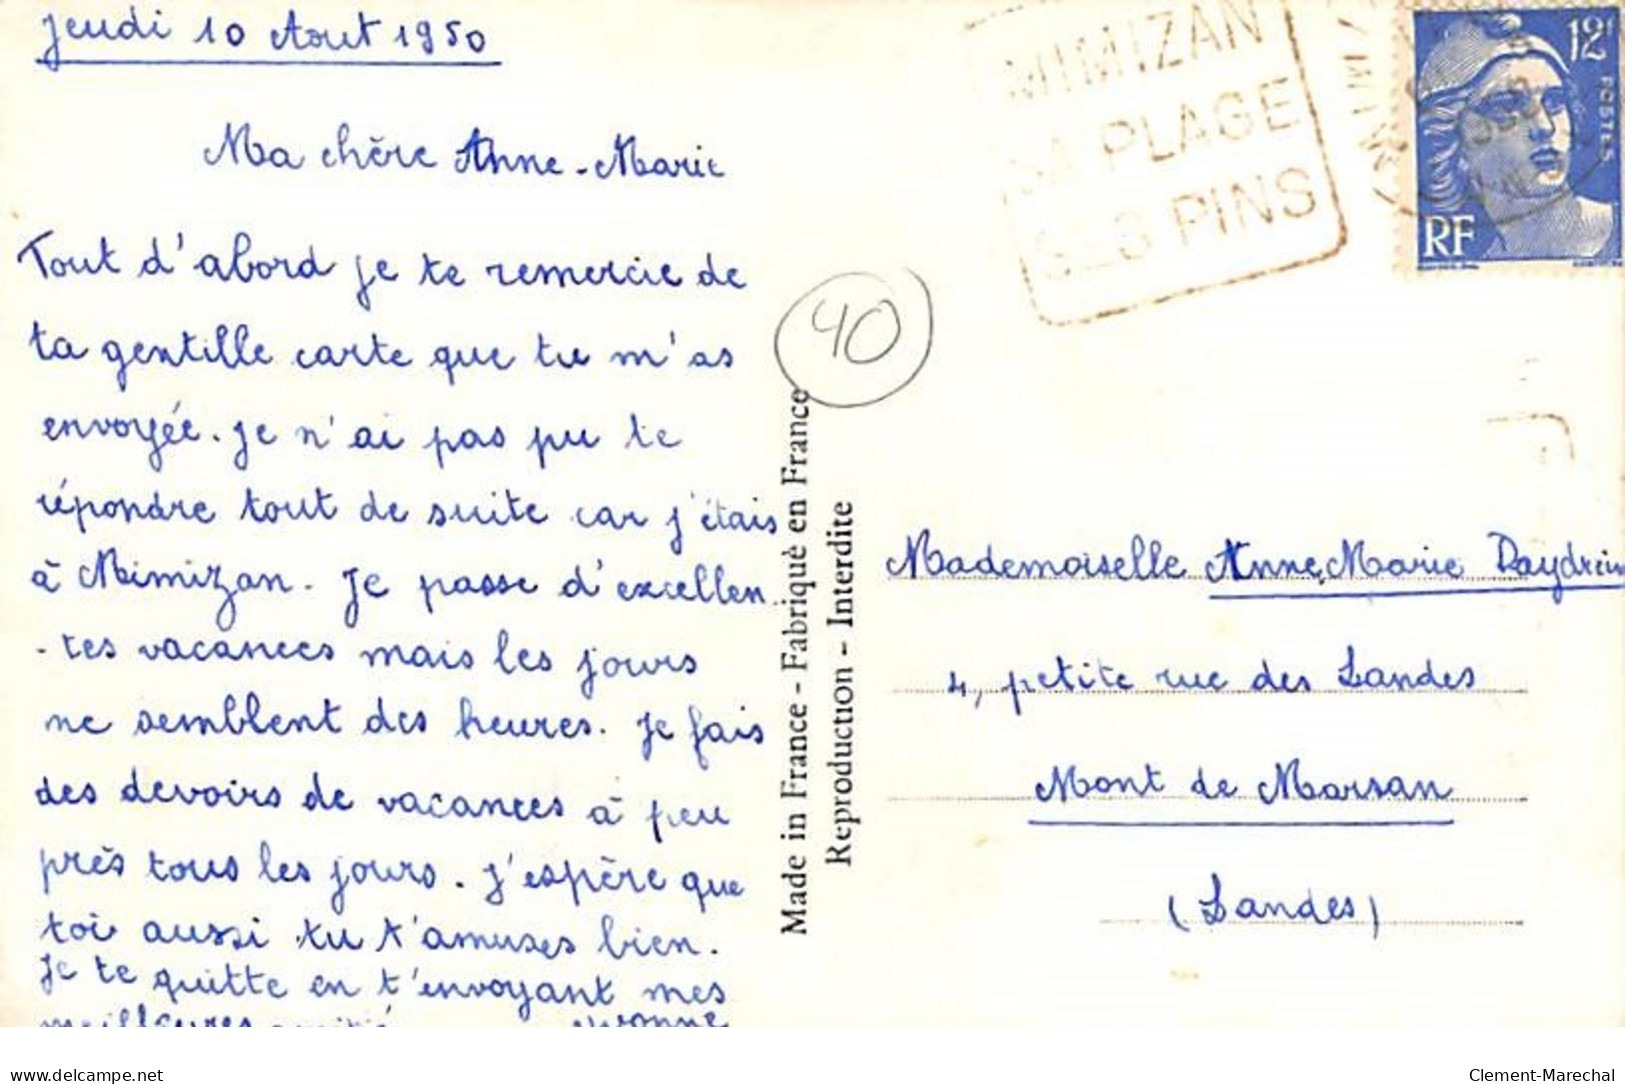 Jeudi 10 Aout 1950
Ma chère Anne-Marie
Tout d'abord je te remercie de
ta gentille carte que tu m'as
envoyée. Je n'ai pas pu te
répondre tout de suite car j'étais
à Mimizan. Je passe d'excellen
-tes vacances mais les jours
me semblent des heures. Je fais
des devoirs de vacances à peu
près tous les jours. J'espère que
toi aussi tu t'amuses bien.
Je te quitte en t'envoyant mes
meilleures Yvonne
Made in France - Fabriqué en France
Reproduction - Interdite
40
MIMIZAN
SA PLAGE
SES PINS
12F
POSTES
RF
Mademoiselle Anne Marie Daydrein
4, petite rue des Landes
Mont de Marsan
(Landes)
delcampe.net
Clement-Marechal